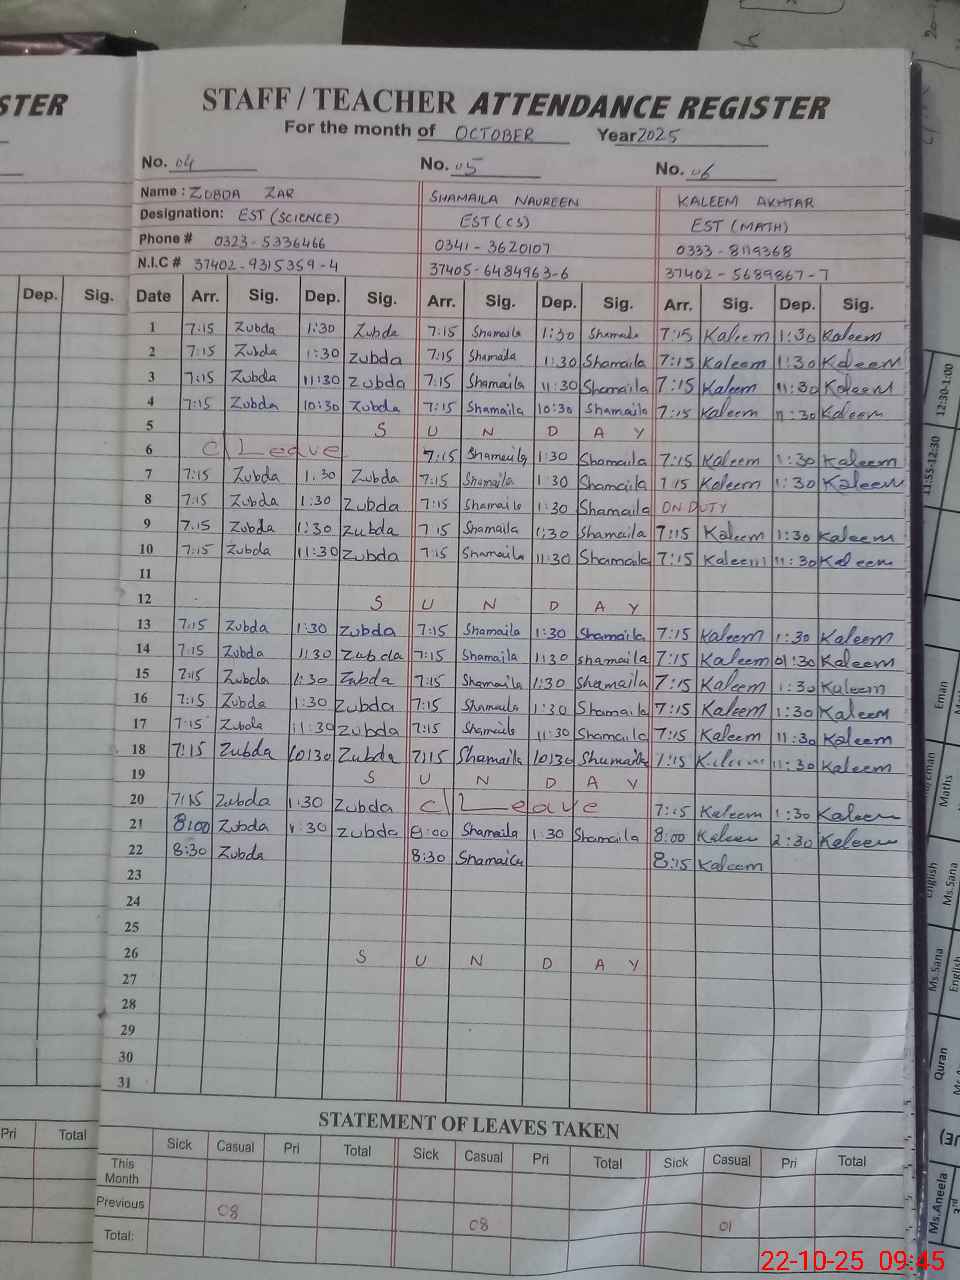 STER
STAFF / TEACHER ATTENDANCE REGISTER
For the month of OCTOBER Year 2025
No. 04 No. 05 No. 06
Name : ZUBDA ZAR SHAMAILA NAUREEN KALEEM AKHTAR
Designation: EST (SCIENCE) EST (CS) EST (MATH)
Phone # 0323-5336466 0341-3620107 0333-8119368
N.I.C # 37402-9315359-4 37405-6484963-6 37402-5689867-7
Dep. Sig. Date Arr. Sig. Dep. Sig. Arr. Sig. Dep. Sig. Arr. Sig. Dep. Sig.
1 7:15 Zubda 1:30 Zubda 7:15 Shamaila 1:30 Shamaila 7:15 Kaleem 1:30 Kaleem
2 7:15 Zubda 1:30 Zubda 7:15 Shamaila 1:30 Shamaila 7:15 Kaleem 1:30 Kaleem
3 7:15 Zubda 11:30 Zubda 7:15 Shamaila 11:30 Shamaila 7:15 Kaleem 11:30 Kaleem
4 7:15 Zubda 10:30 Zubda 7:15 Shamaila 10:30 Shamaila 7:15 Kaleem 11:30 Kaleem
5 S U N D A Y
6 C/Leave 7:15 Shamaila 1:30 Shamaila 7:15 Kaleem 1:30 Kaleem
7 7:15 Zubda 1:30 Zubda 7:15 Shamaila 1:30 Shamaila 7:15 Kaleem 1:30 Kaleem
8 7:15 Zubda 1:30 Zubda 7:15 Shamaila 1:30 Shamaila ON DUTY
9 7:15 Zubda 1:30 Zubda 7:15 Shamaila 1:30 Shamaila 7:15 Kaleem 1:30 Kaleem
10 7:15 Zubda 11:30 Zubda 7:15 Shamaila 11:30 Shamaila 7:15 Kaleem 11:30 Kaleem
11
12 S U N D A Y
13 7:15 Zubda 1:30 Zubda 7:15 Shamaila 1:30 Shamaila 7:15 Kaleem 1:30 Kaleem
14 7:15 Zubda 1:30 Zubda 7:15 Shamaila 1:30 Shamaila 7:15 Kaleem 01:30 Kaleem
15 7:15 Zubda 1:30 Zubda 7:15 Shamaila 1:30 Shamaila 7:15 Kaleem 1:30 Kaleem
16 7:15 Zubda 1:30 Zubda 7:15 Shamaila 1:30 Shamaila 7:15 Kaleem 1:30 Kaleem
17 7:15 Zubda 11:30 Zubda 7:15 Shamaila 11:30 Shamaila 7:15 Kaleem 11:30 Kaleem
18 7:15 Zubda 10:30 Zubda 7:15 Shamaila 10:30 Shamaila 7:15 Kaleem 11:30 Kaleem
19 S U N D A Y
20 7:15 Zubda 1:30 Zubda C/Leave 7:15 Kaleem 1:30 Kaleem
21 8:00 Zubda 1:30 Zubda 8:00 Shamaila 1:30 Shamaila 8:00 Kaleem 2:30 Kaleem
22 8:30 Zubda 8:30 Shamaila 8:15 Kaleem
23
24
25
26 S U N D A Y
27
28
29
30
31
STATEMENT OF LEAVES TAKEN
Pri Total Sick Casual Pri Total Sick Casual Pri Total Sick Casual Pri Total
This Month
Previous 08 08 01
Total:
12:30-1:00
11:55-12:30
Eman
Maths
English
Ms.Sana
Ms.Sana
English
Quran
Ms.Aneela
3rd
22-10-25 09:45